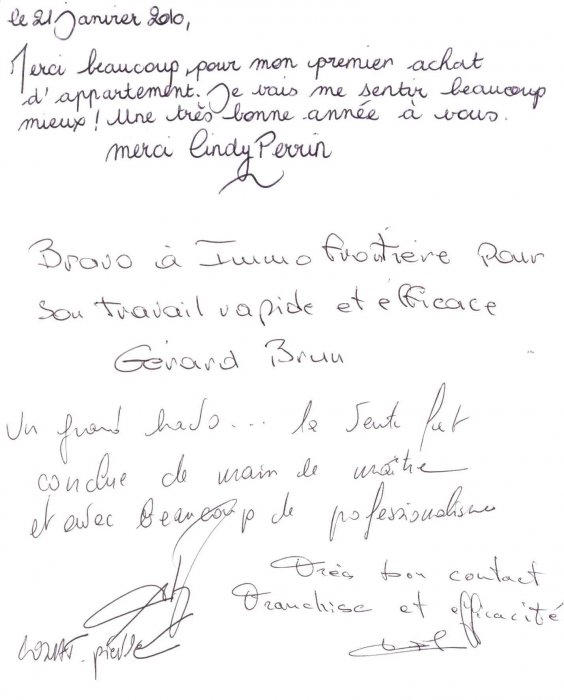 le 21 janvier 2010,
Merci beaucoup, pour mon premier achat
d'appartement. Je vais me sentir beaucoup
mieux! Une très bonne année à vous.
merci Cindy Perrin
Bravo à Immo frontière pour
son travail rapide et efficace
Gérard Brun
Un grand ... la vente fut
conclue de main de maître
et avec beaucoup de professionalisme
Très bon contact
Franchise et efficacité
pierre